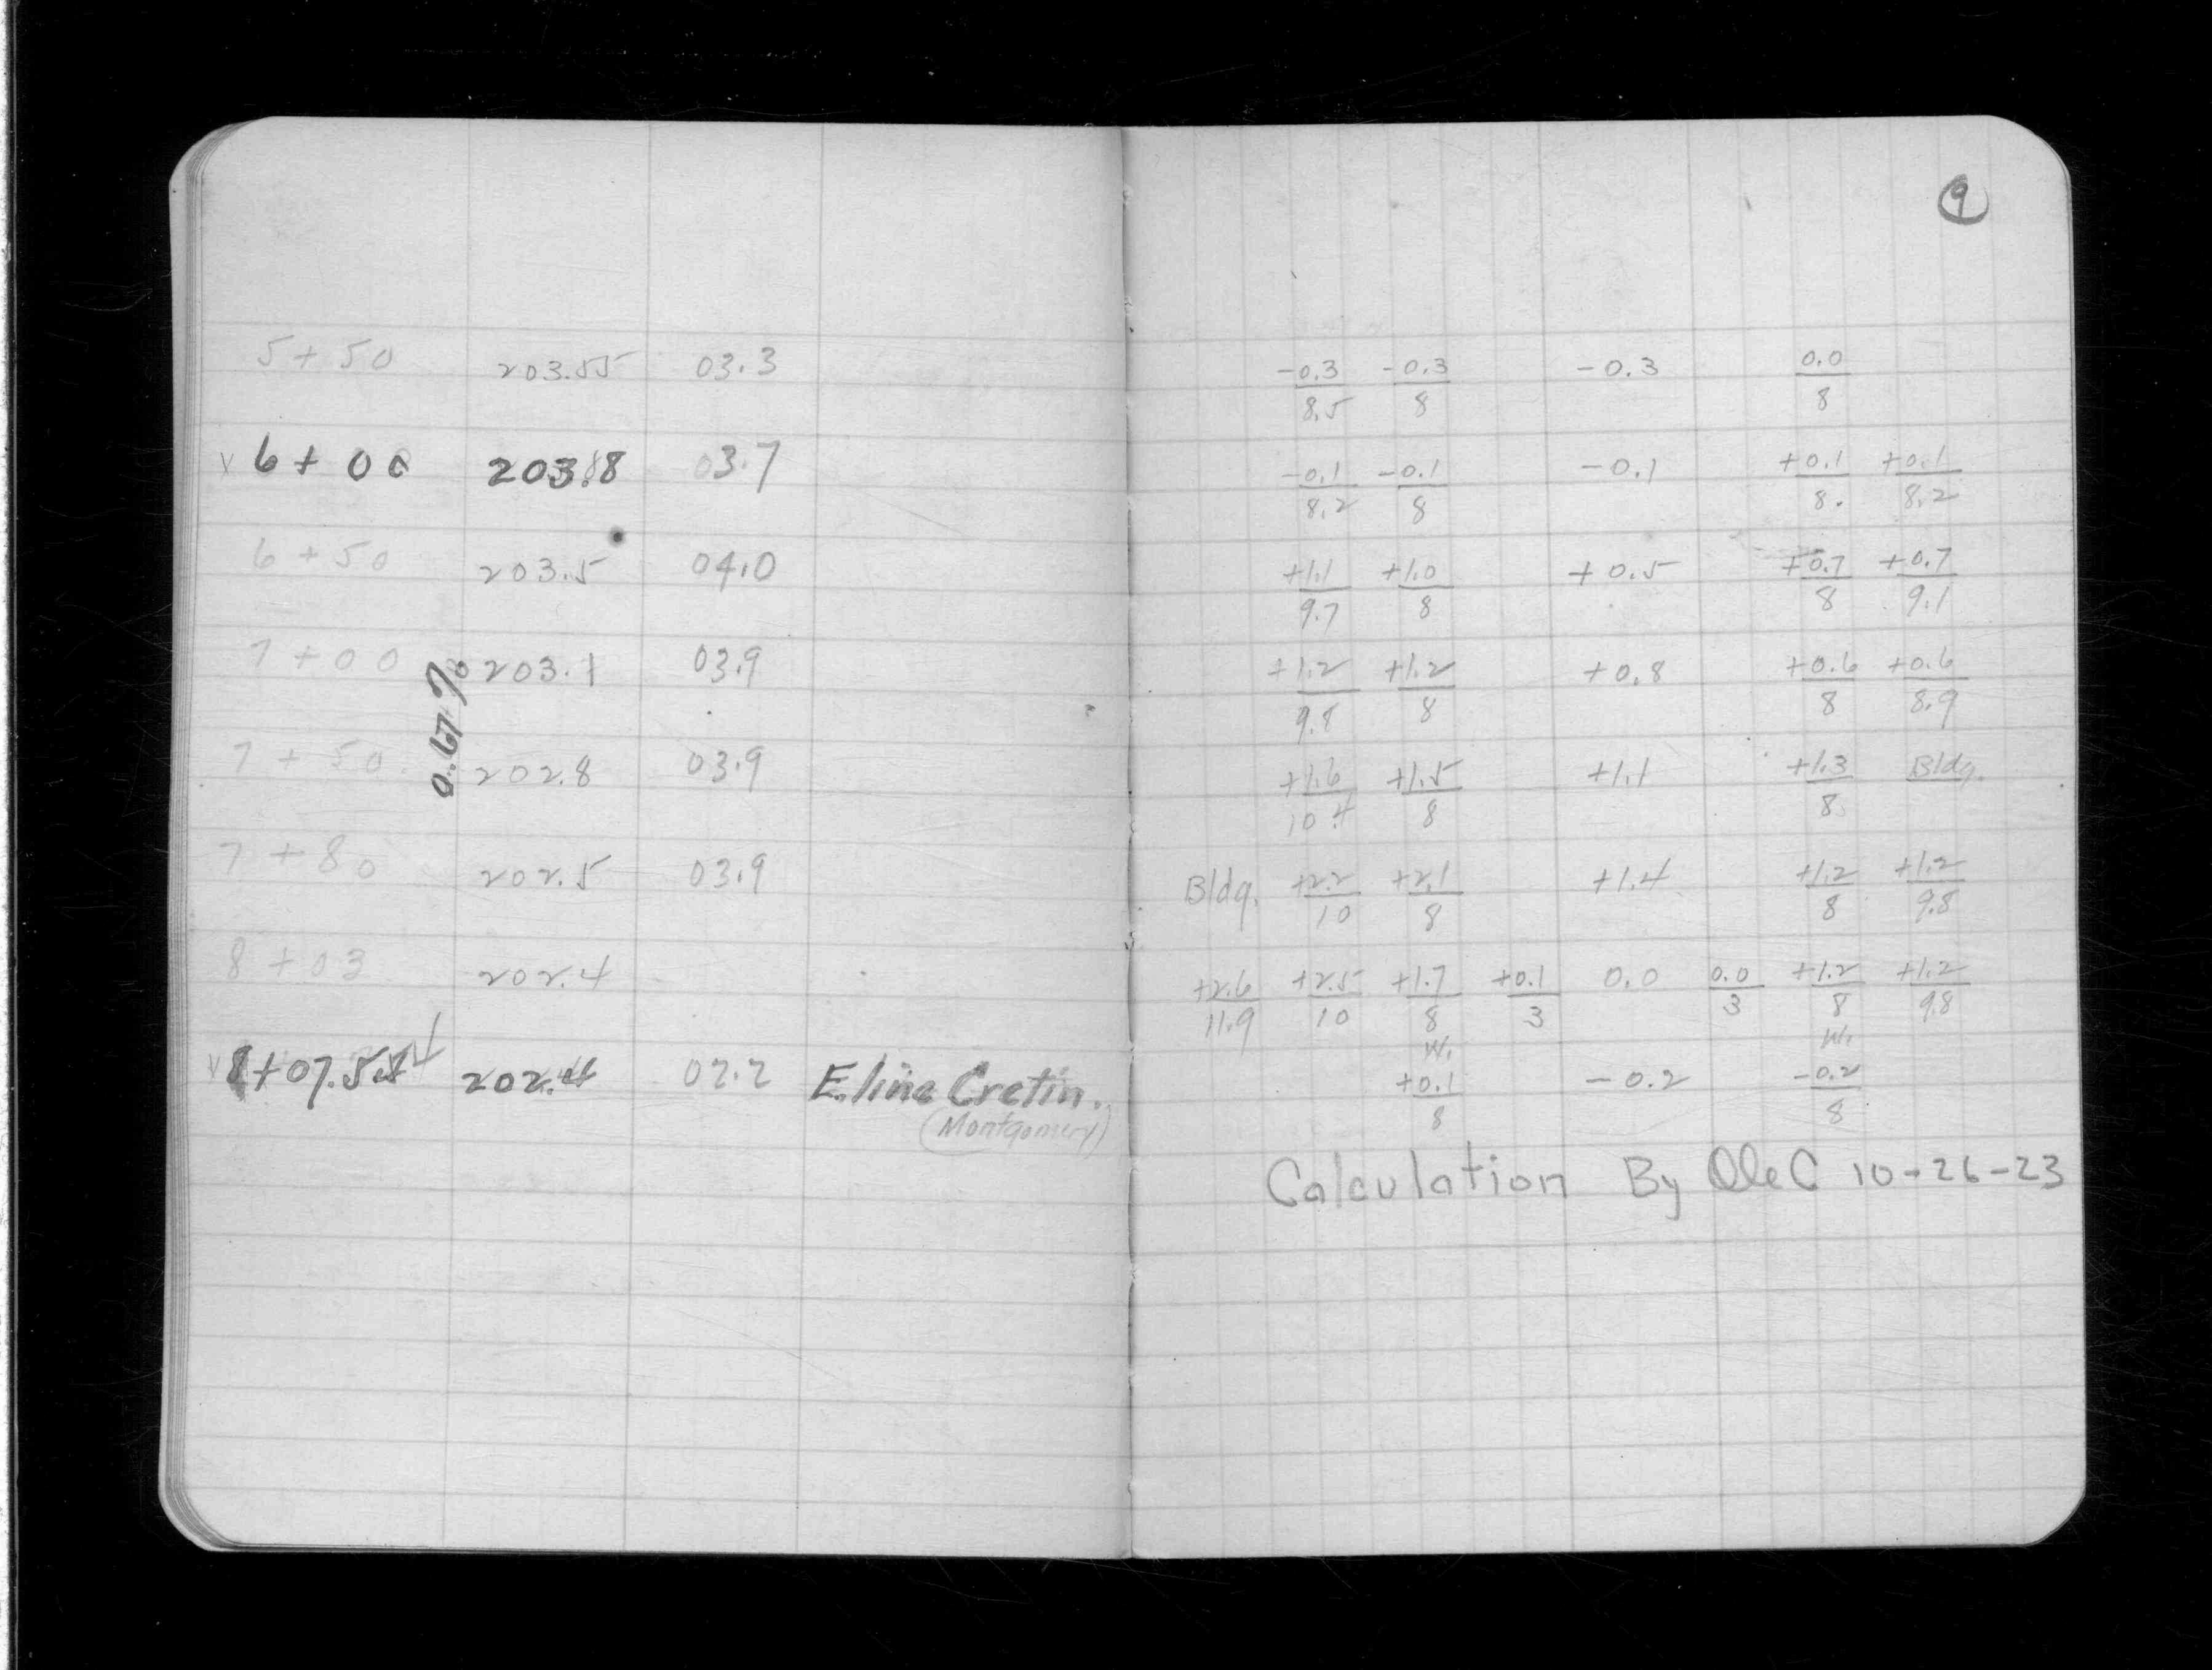 9
5+50 203.55 03.3 -0.3/8.5 -0.3/8 -0.3 0.0/8
v 6+00 203.8 03.7 -0.1/8.2 -0.1/8 -0.1 +0.1/8. +0.1/8.2
6+50 203.5 04.0 +1.1/9.7 +1.0/8 +0.5 +0.7/8 +0.7/9.1
7+00 203.1 03.9 +1.2/9.8 +1.2/8 +0.8 +0.6/8 +0.6/8.9
0.67%
7+50 202.8 03.9 +1.6/10.4 +1.5/8 +1.1 +1.3/8 Bldg.
7+80 202.5 03.9 Bldg. +2.2/10 +2.1/8 +1.4 +1.2/8 +1.2/9.8
8+03 202.4 +2.6/11.9 +2.5/10 +1.7/8 +0.1/3 0.0 0.0/3 +1.2/8 +1.2/9.8
W. W.
v 202.4 02.2 E. line Cretin. +0.1/8 -0.2 -0.2/8
(Montgomery)
Calculation By Ole C 10-26-23